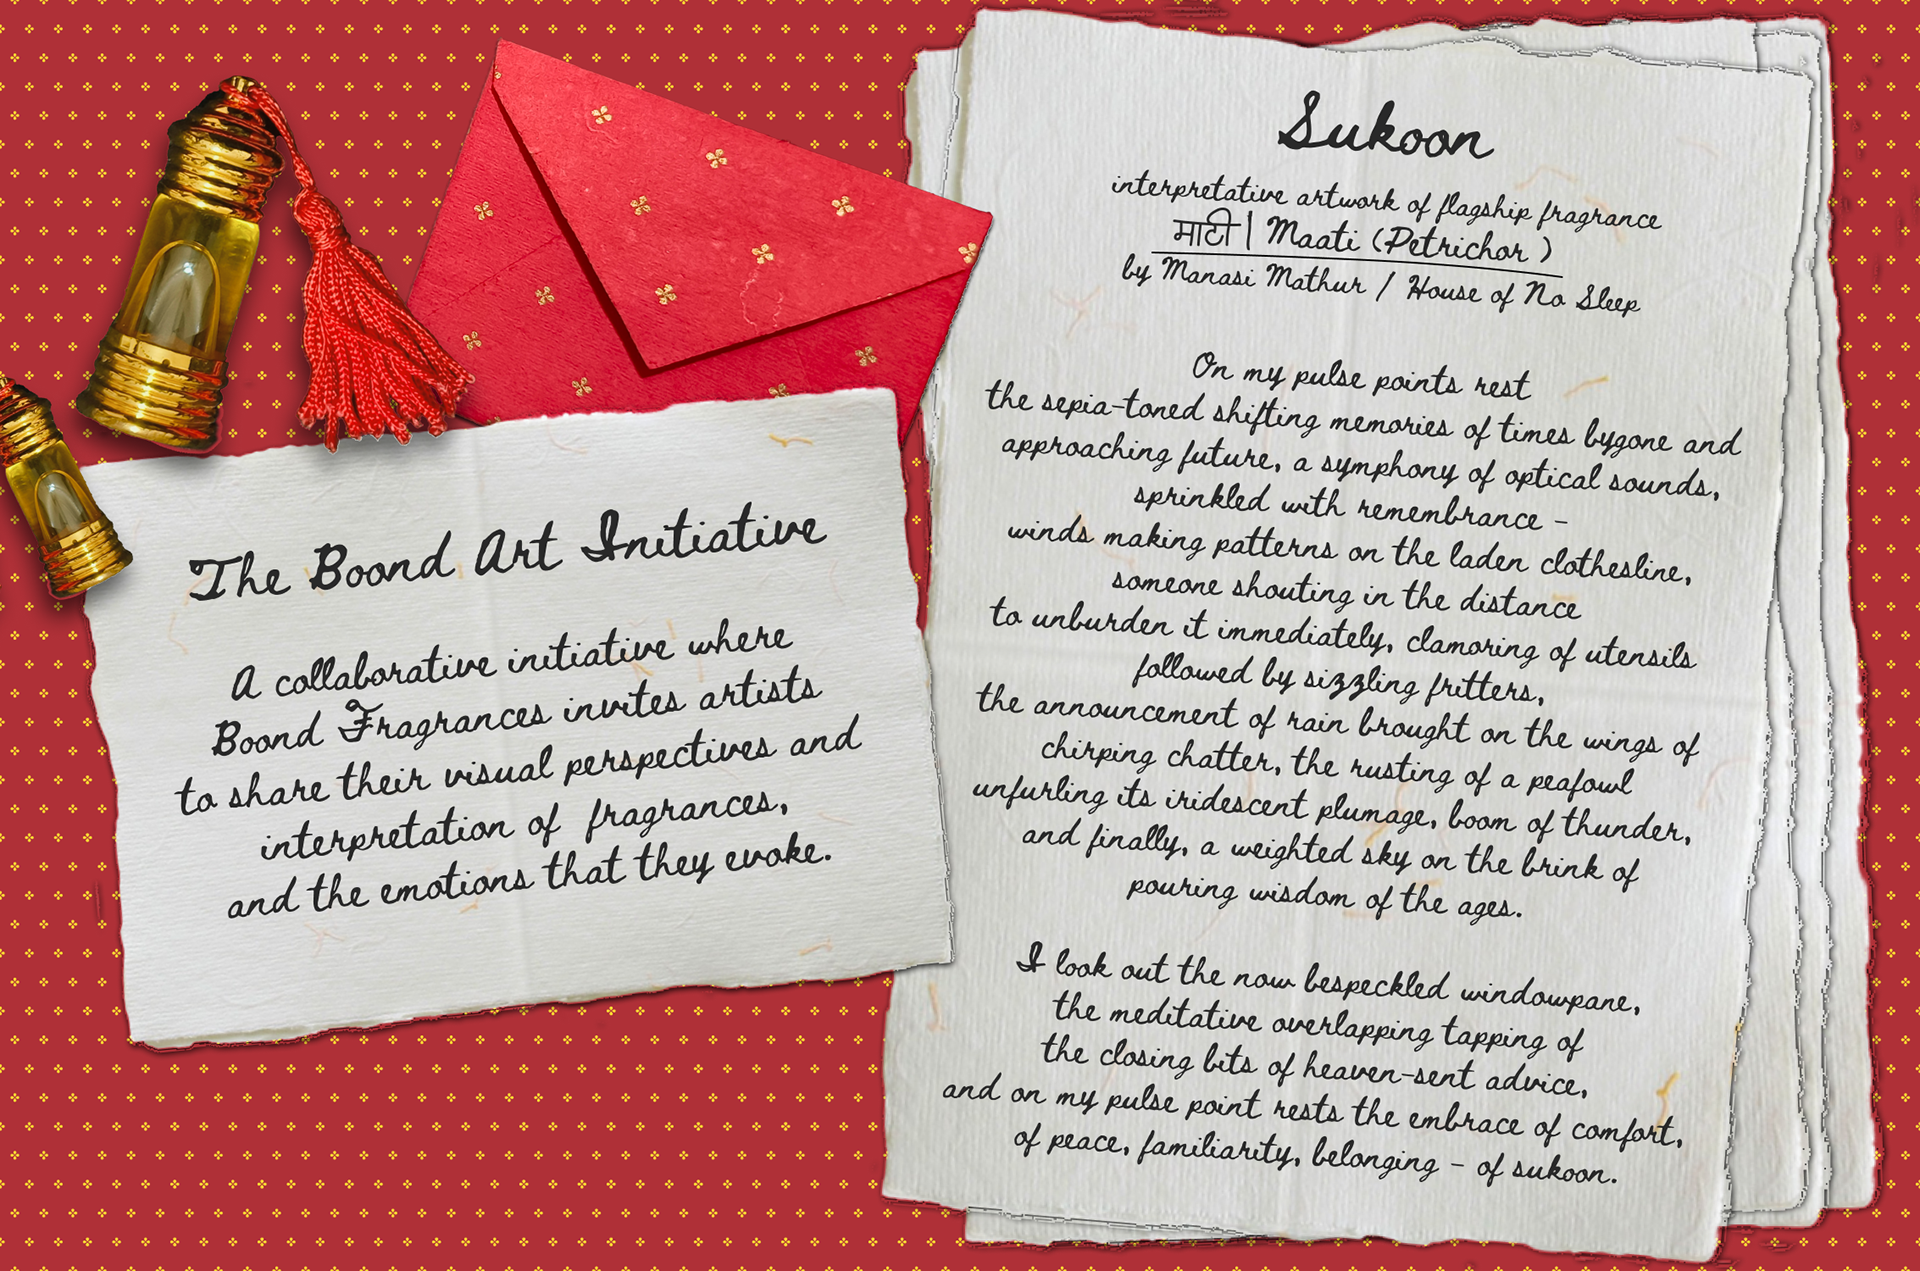 The Boond Art Initiative
A collaborative initiative where
Boond Fragrances invites artists
to share their visual perspectives and
interpretation of fragrances,
and the emotions that they evoke.
Sukoon
interpretative artwork of flagship fragrance
माटी | Maati (Petrichor )
by Manasi Mathur / House of No Sleep
On my pulse points rest
the sepia-toned shifting memories of times bygone and
approaching future, a symphony of optical sounds,
sprinkled with remembrance -
winds making patterns on the laden clothesline,
someone shouting in the distance
to unburden it immediately, clamoring of utensils
followed by sizzling fritters,
the announcement of rain brought on the wings of
chirping chatter, the rusting of a peafowl
unfurling its iridescent plumage, boom of thunder,
and finally, a weighted sky on the brink of
pouring wisdom of the ages.
I look out the now bespeckled windowpane,
the meditative overlapping tapping of
the closing bits of heaven-sent advice,
and on my pulse point rests the embrace of comfort,
of peace, familiarity, belonging - of sukoon.